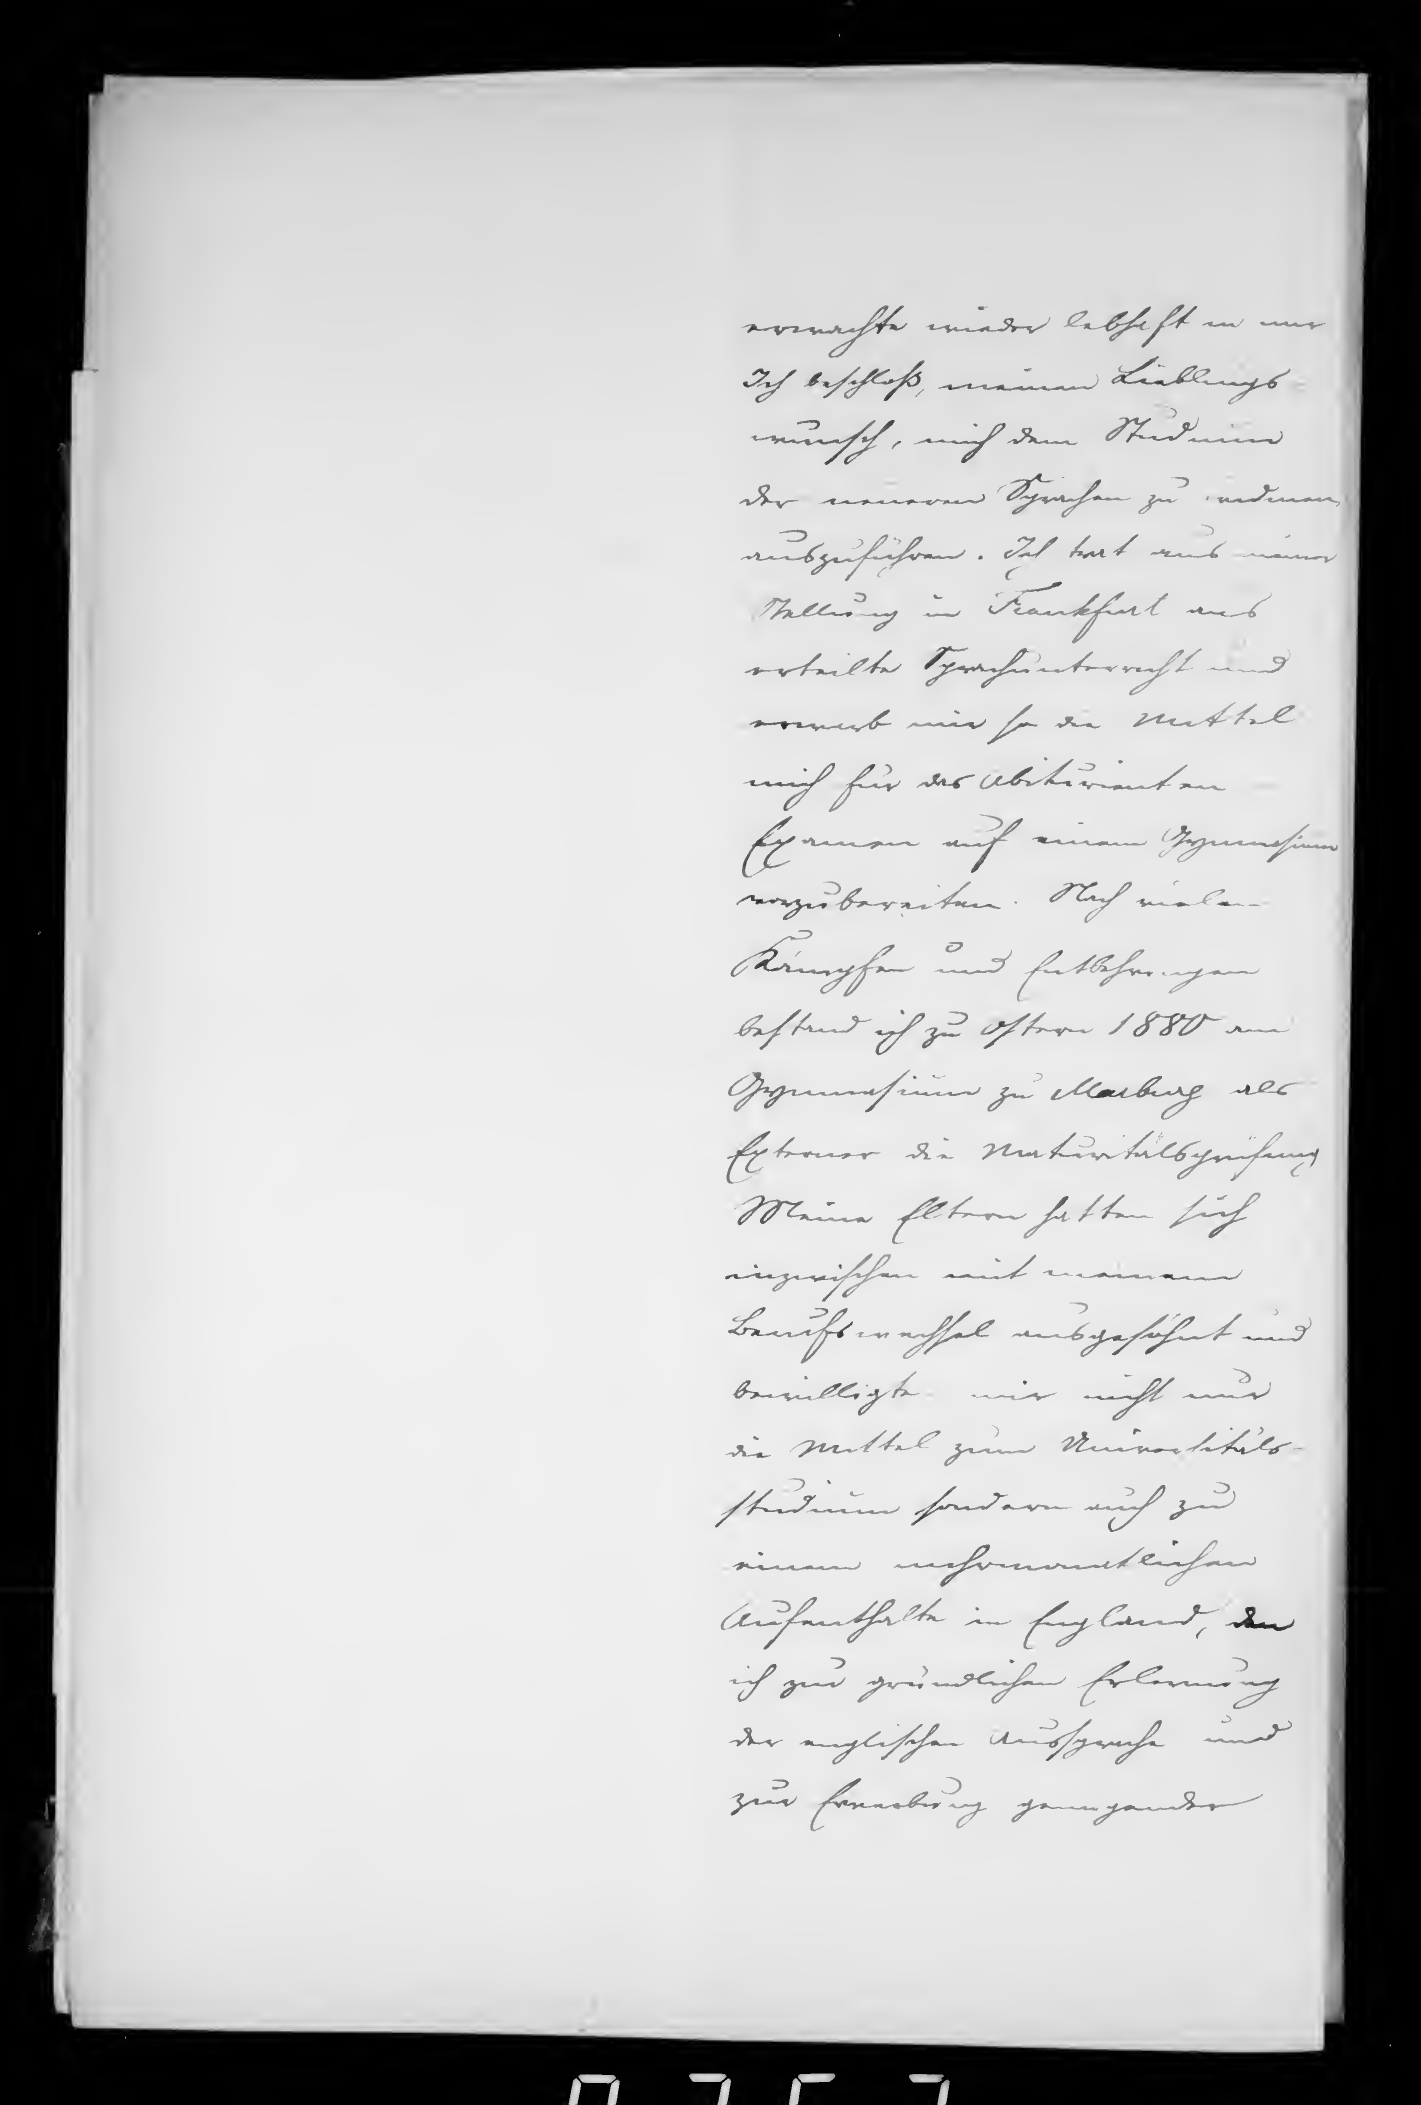 erwachte wieder lebhaft in mir
Ich beschloß, meinen Lieblings
wunsch, mich dem Studium
der neueren Sprachen zu widmen,
auszuführen. Ich trat aus meiner
Stellung in Frankfurt aus
erteilte Sprachunterricht und
erwarb mir so die Mittel
mich für das Abiturienten
Examen auf einem Gymnasium
vorzubereiten. Nach vielen
Kämpfen und Entbehrungen
bestand ich zu Ostern 1880 am
Gymnasium zu Marburg als
Externer die Maturitätsprüfung
Meine Eltern hatten sich
inzwischen mit meinem
Berufswechsel ausgesöhnt und
bewilligte mir nicht nur
die Mittel zum Universitäts-
studium sondern auch zu
einem mehrmonatlichen
Aufenthalte in England, den
ich zur gründlichen Erlernung
der englischen Aussprache und
zur Erwerbung genügender